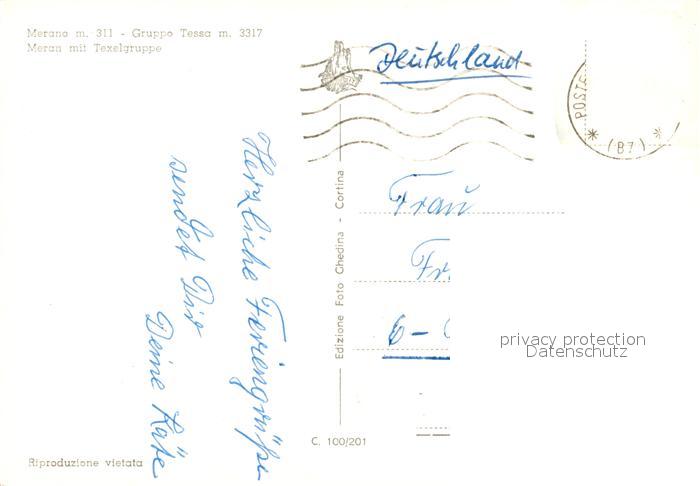 Merano m. 311 - Gruppo Tessa m. 3317
Meran mit Texelgruppe
Deutschland
POSTE
* (BZ) *
Herzliche Feriengrüße
sendet Dir
Deine Käte
Edizione Foto Ghedina - Cortina
Frau
privacy protection
Datenschutz
C. 100/201
Riproduzione vietata